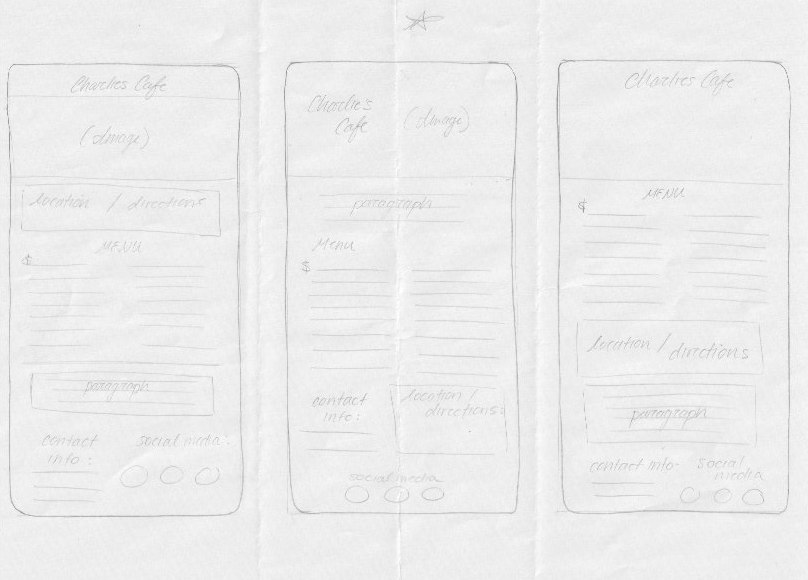 Charlies Cafe
(Image)
location / directions
MENU
$
paragraph
contact
info :
social media :
Charlies
Cafe
(Image)
paragraph
Menu
$
contact
info :
location /
directions:
social media
Charlies Cafe
MENU
$
location / directions
paragraph
contact info-
social
media